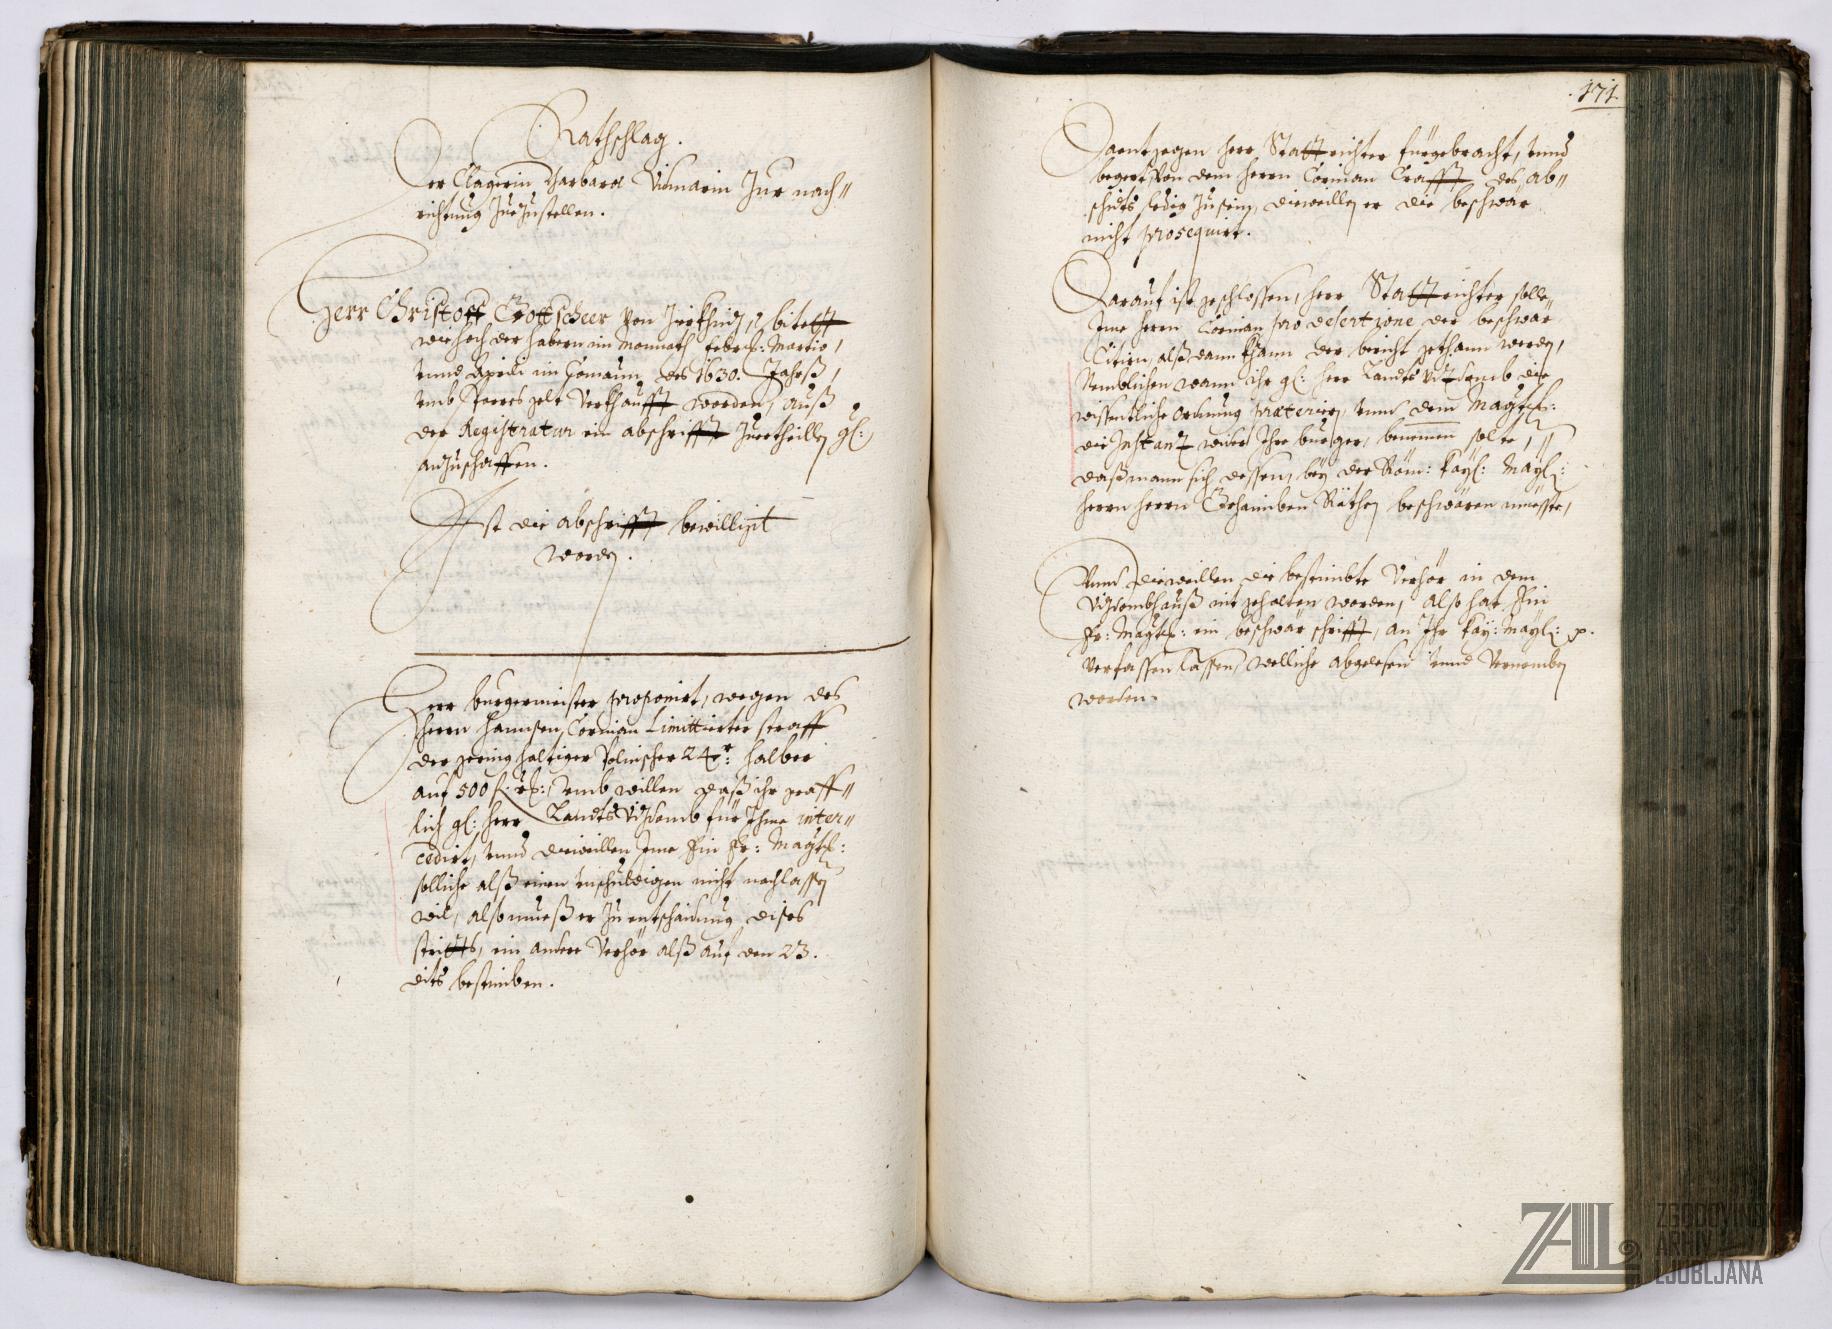 Rathschlag.
Der Clagerin Barbara Vimarin Zur nach=
richtung Zuezustellen.
Herr Christoff Gottscheer von Zirkhniz, bitett
wie hoch der habern im Monnath Febru: Martio,
vnnd Aprili im Comaun des 1630. Jahrß,
vmb Parres gelt verkhaufft worden, auß
der Registratur ein abschrifft Zuertheillen gl:
anzuschaffen.
Ist die abschrifft bewilligt
worden.
Herr burgermeister proponirt, wegen des
herrn Hannsen Cormian Limittierter straff
der gering haltiger Polnischer 24 halber
auf 500 f: vmb willen daß ihr graff=
lich gl: herr Landts Vizdomb für Ihme inter=
cedirt, vnnd dieweillen Ime Ein Er: Magtl:
solliche alß einen vnschuldigen nicht nachlassen
will, also mueß er Zu entschaidung dises
stritts, ein andere Verhör alß auf den 23.
dits bestimben.
171.
Daentgegen herr Stattrichter fürgebracht, vnnd
begert von dem herrn Cormian Crafft des ab=
schidts ledig zu sein, dieweillen er die beschwär
nicht prosequirt.
Darauf ist geschlossen, herr Stattrichter solle
Ime herrn Cormian pro desertione der beschwär
Citirn, alß dann khann der bericht gethann werden,
Nemblichen wann ihr gl: herr Landts Vizdomb die
wissentliche Ordnung præterien, vnnd dem Magtl:
die Instanz wider Ihre burger, benemen solte,
daß mann sich dessen, bey der Röm: Kayl: Mayl:
herrn herrn Gehaimben Räthen beschwären müesste,
Vnnd dieweillen die bestimbte Verhör in dem
Vizdombhauß nit gehalten worden, also hat Ein
Er: Magtl: ein beschwär schrifft, an Ihr Kay: Mayl:
verfassen lassen, welliche abgelesen vnnd vernomben
worden.
ZAL
ZGODOVINSKI
ARHIV
LJUBLJANA